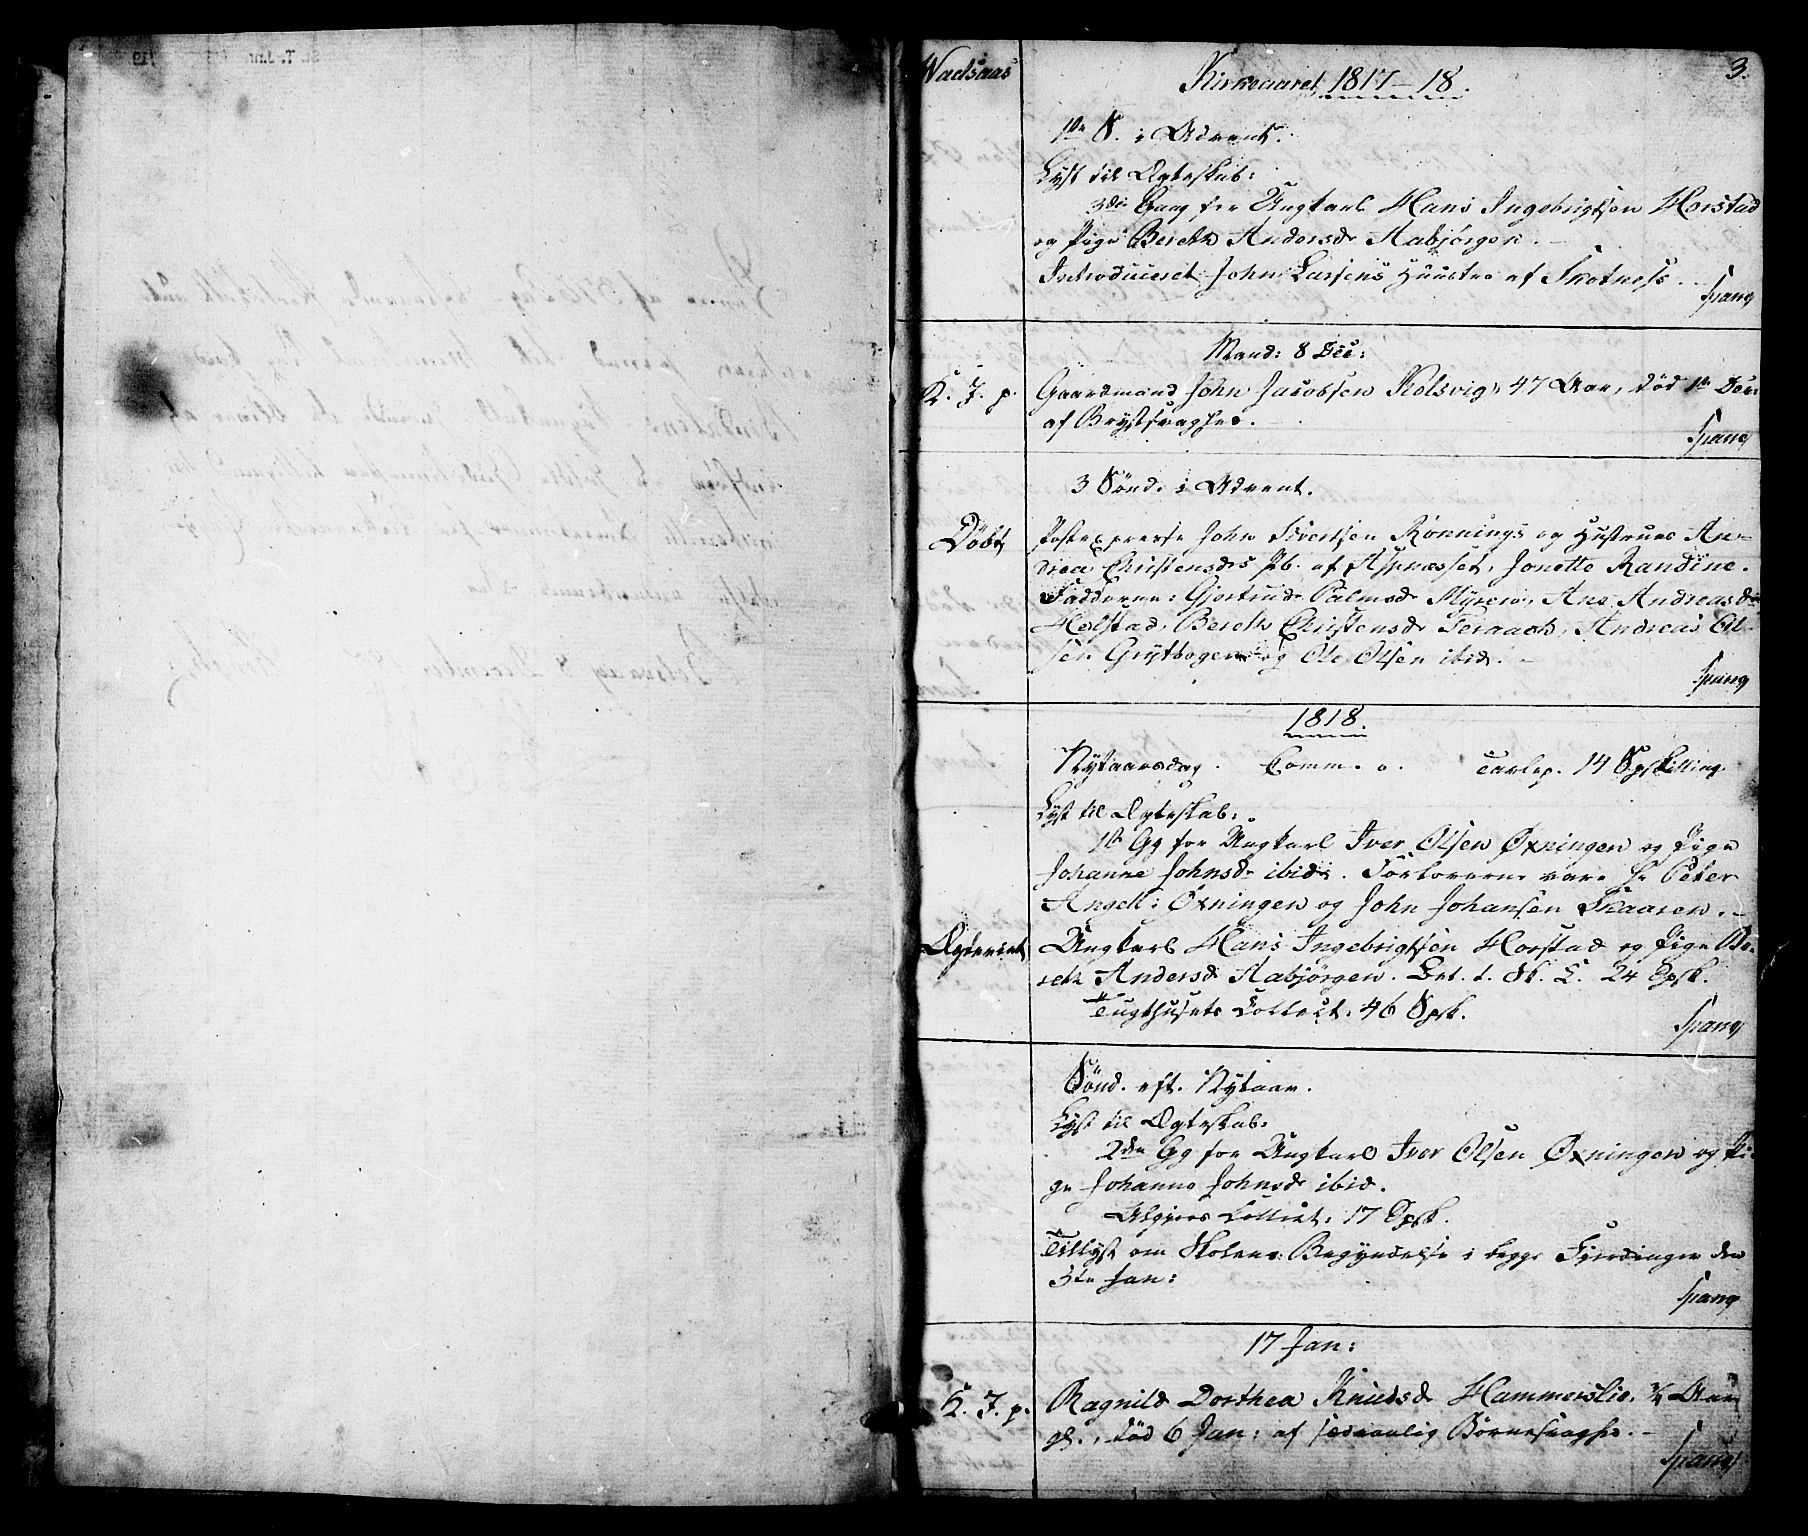 Wadsaas
3.
Kirkeaaret 1817–18.
1te S. i Advent.
Lyst til Ægteskab:
3die Gang for Ungkarl Hans Ingebrigtsen Horstad
og Pige Bereth Andersd. Aabjörgen.
Introduceret John Larsens Huustro af Skotness.
Spang
Mand: 8 Dec:
K. J. p.
Gaardmand John Jacobsen Kolsvig, 47 Aar, död 1te Dec:
af Brystsvaghed.
Spang
3 Sönd. i Advent.
Döbt
John Ivertsen Rönnings og Hustrue An-
drea Christensdes Pb. af Aspnesset, Jonette Randine.
Fadderne: Gjertrud Palmsd. Myren, Ane Andreasd.
Holstad, Bereth Christensd. Teraack, Andreas Ol-
sen Grytbogen og Ole Olsen ibid.
Spang
1818.
Nytaarsdag. Comm. 0. Tavlep. 14 Spskilling
Lyst til Ægteskab:
1ste Gg for Ungkarl Iver Olsen Øxningen og Pige
Johanne Johnsd. ibid. Forlovere vare Hr Peter
Angell: Øxningen og John Johansen Skaaren.
Ægteviet
Ungkarl Hans Ingebrigtsen Horstad og Pige Be-
reth Andersd. Aabjörgen. 24 Spsk.
Tugthusets Collect: 46 Spsk.
Spang
Sönd. eft. Nytaar.
Lyst til Ægteskab:
2den Gg for Ungkarl Iver Olsen Øxningen og Pi-
ge Johanne Johnsd. ibid.
Collect: 17 Spsk.
Tillyst om Skolens Begyndelse i begge Fjerdinger den
Jan:
Spang
17 Jan:
K. J. p.
Ragnild Dorthea Knudsd. Hammerslie, ¾ Aar
gl., död 6 Jan: af sædvanlig Börnesvaghed.
Spang